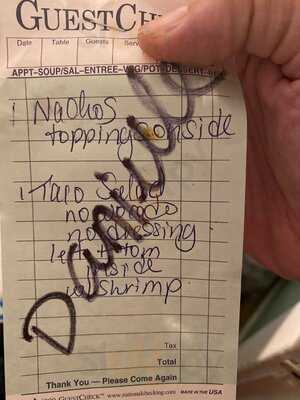 GUESTCHECK
Date Table Guests Server
APPT-SOUP/SAL-ENTREE-VEG/POT-DESSERT-BEV
1 Nachos
toppings on side
1 Taco Salad
no
no dressing
inside
w/ Shrimp
Danielle
Tax
Total
Thank You — Please Come Again
GUESTCHECK™ www.nationalchecking.com MADE IN THE USA